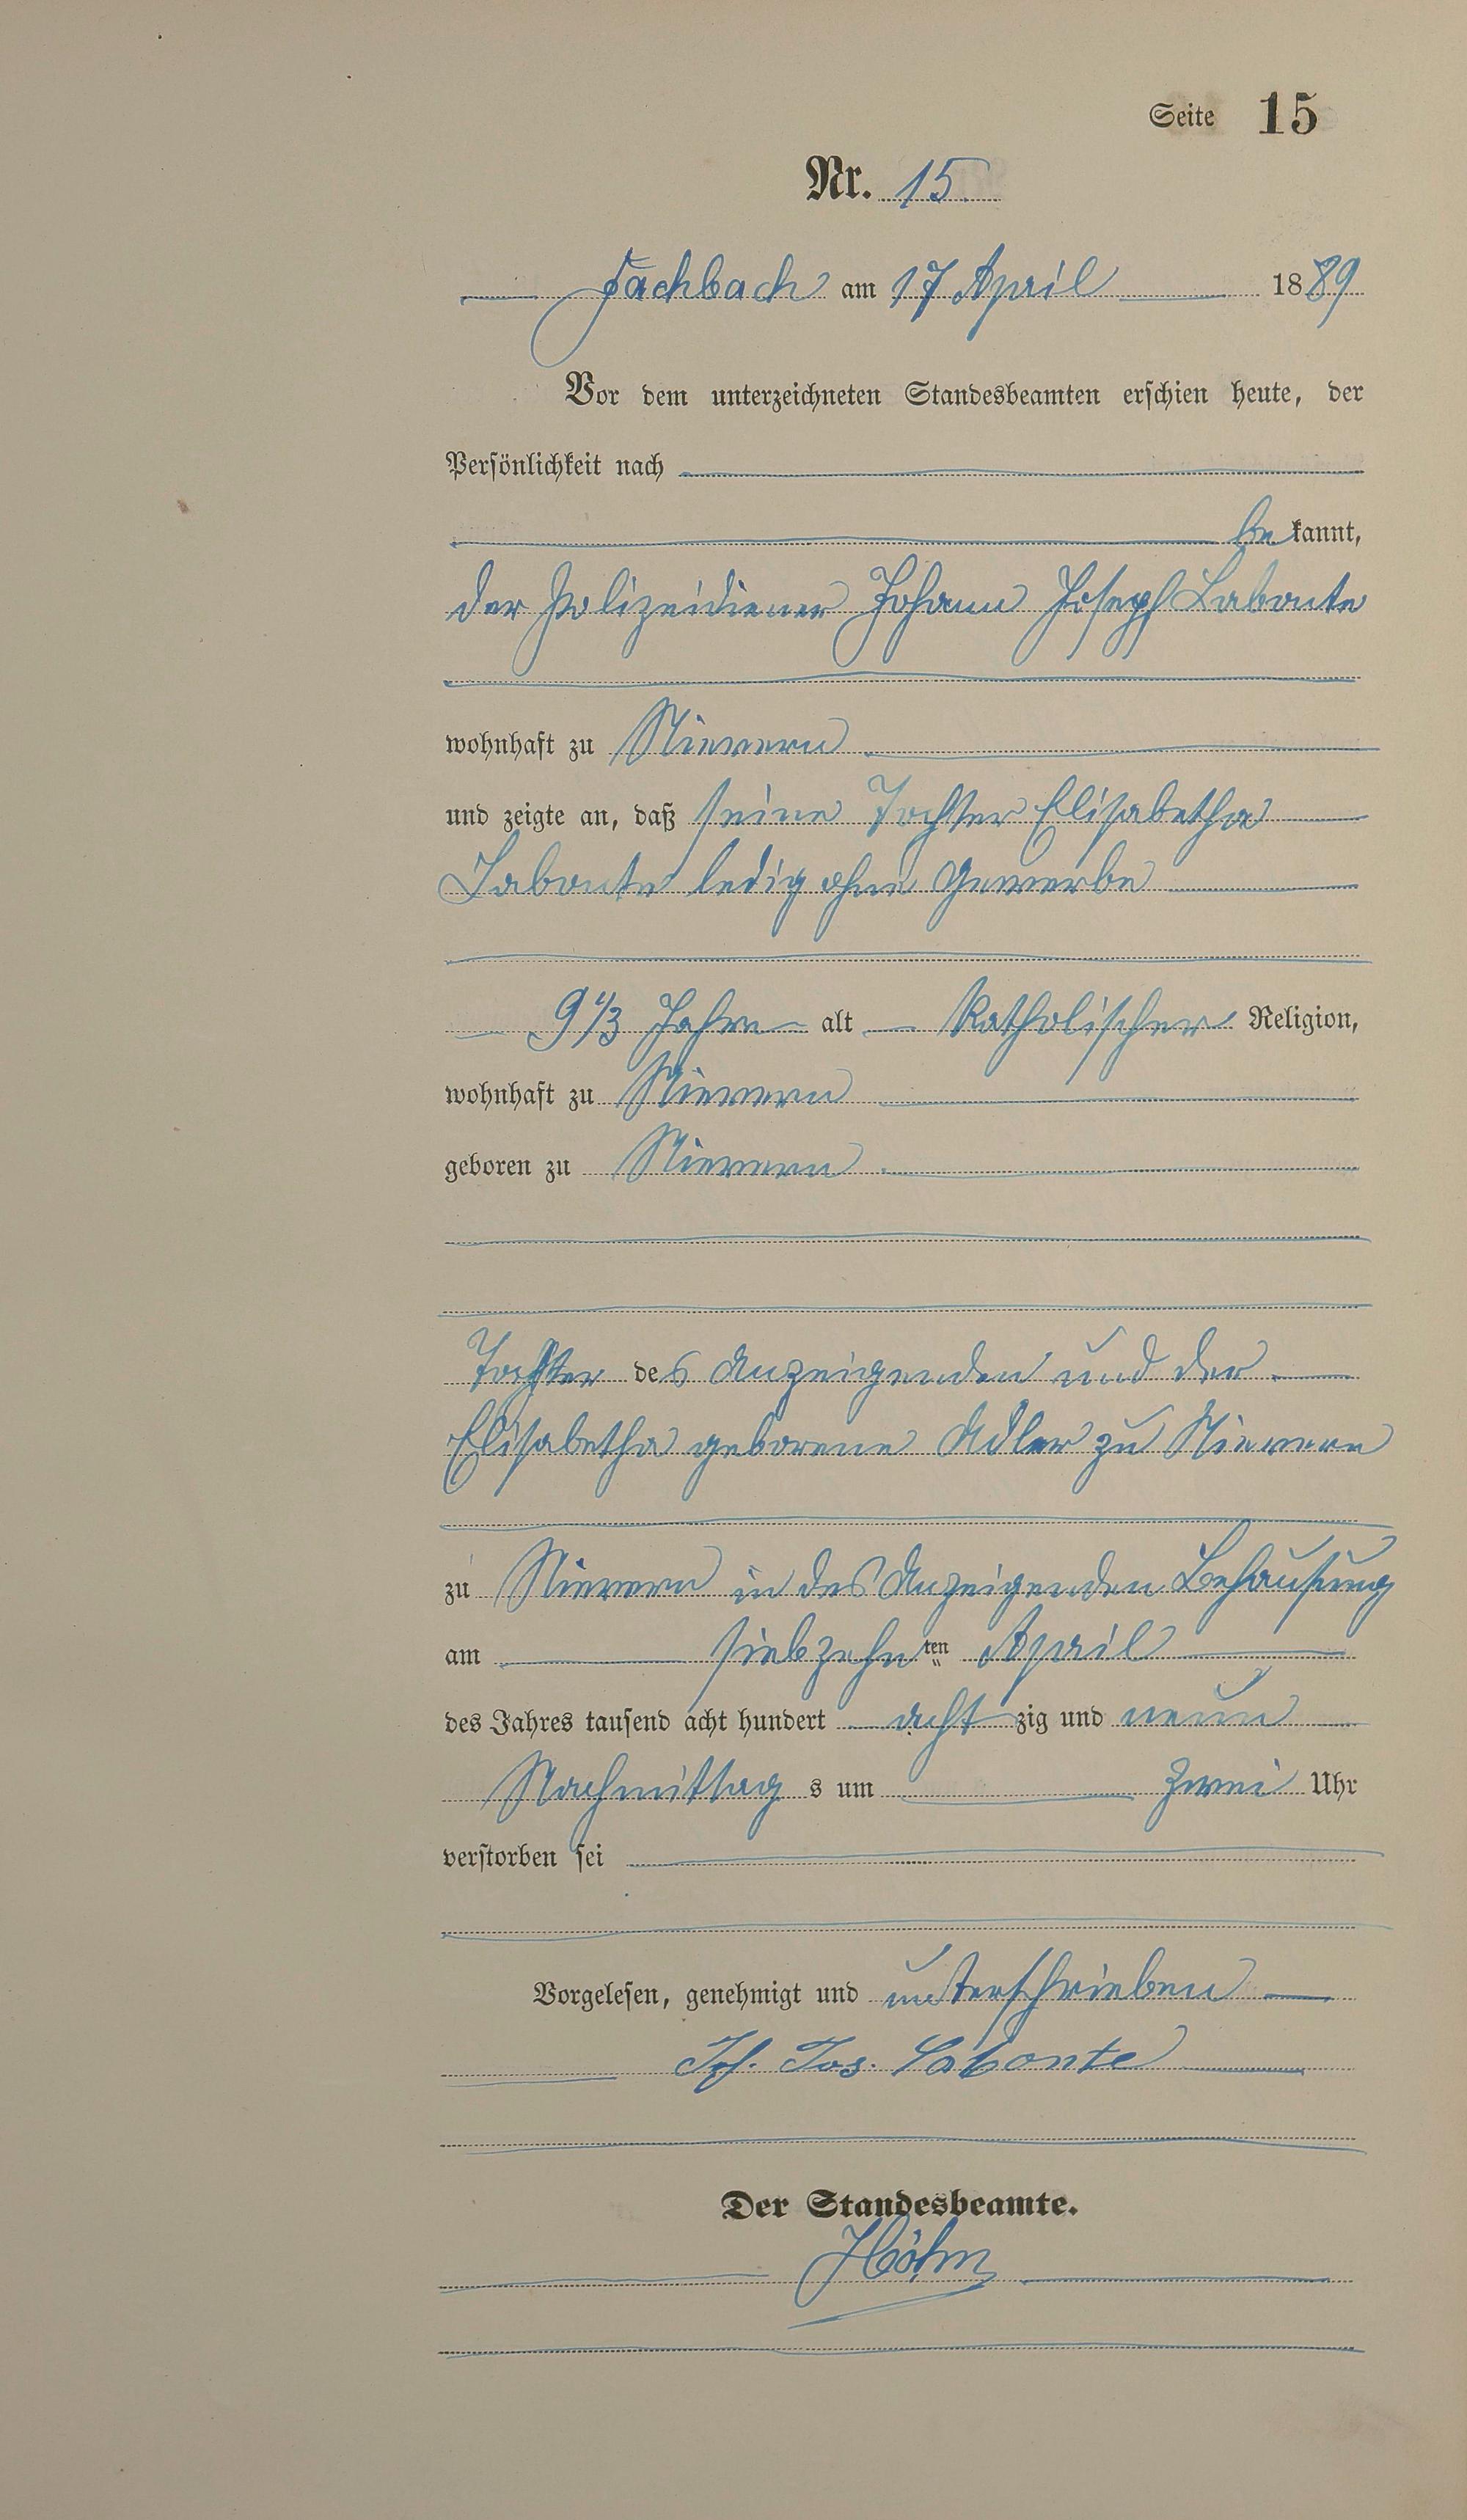 Seite 15
Nr. 15.
Fachbach am 17 April 1889
Vor dem unterzeichneten Standesbeamten erschien heute, der
Persönlichkeit nach
be kannt,
der Polizeidiener Johann Joseph Labonte
wohnhaft zu Nievern
und zeigte an, daß seine Tochter Elisabetha
Labonte ledig ohne Gewerbe
9 1/3 Jahre alt Katholischer Religion,
wohnhaft zu Nievern
geboren zu Nievern
Tochter des Anzeigenden und der
Elisabetha geborene Adler zu Nievern
zu Nievern in des Anzeigenden Behausung
am siebzehnten April
des Jahres tausend acht hundert acht zig und neun
Nachmittag s um zwei Uhr
verstorben sei
Vorgelesen, genehmigt und unterschrieben
Joh. Jos. Labonte
Der Standesbeamte.
Höhn